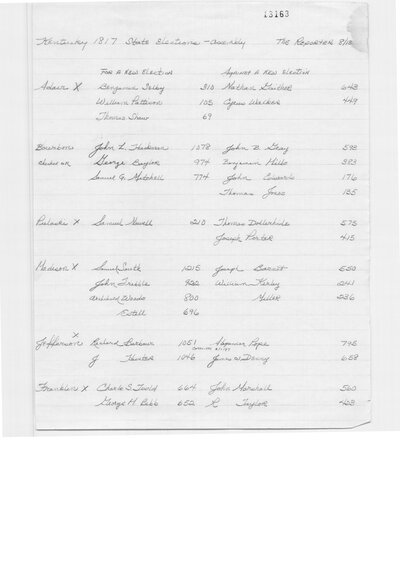 13163
Kentucky 1817 State Elections - Assembly THE REPORTER
FOR A NEW ELECTION AGAINST A NEW ELECTION
Adair X Benjamin Selby 310 Nathan Gaither 648
William Patterson 105 Cyrus Walker 449
Thomas Shaw 69
Bourbon John L. Hickman 1078 John B. Gray 598
George Baylor 974 Benjamin Mills 383
Samuel G. Mitchell 774 John Edwards 176
Thomas Jones 135
Pulaski X Samuel Newell 210 Thomas Dollarhide 575
Joseph Porter 415
Madison X Samuel South 1215 Joseph Barnett 550
John Tribble 922 William Kerley 241
Archibald Woods 800 Miller 236
Estill 696
Jefferson X Richard Barbour 1051 Alexander Pope 795
J Hunter 1046 James D. Denny 658
Franklin X Charles S. Todd 664 John Marshall 500
George M. Bibb 652 R Taylor 403